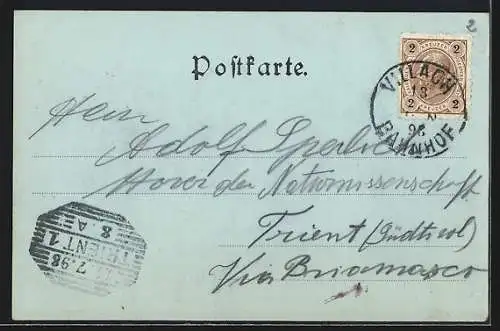 2
Postkarte.
2 KREUZER 2
2 KREUZER 2
VILLACH
13
98
BAHNHOF
Herrn
Adolf
Hörer der Naturwissenschaft
Trient (Südtirol)
Via Briamasco
7.98
TRIENT 1
8.